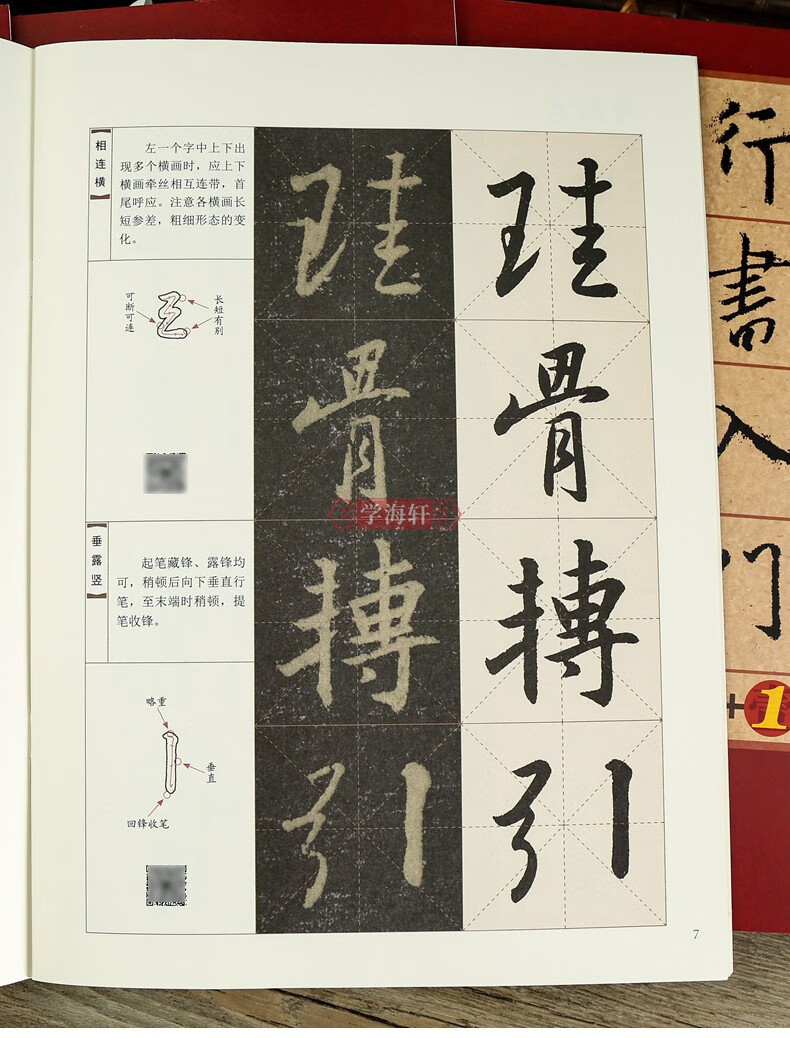 相连横
左一个字中上下出
现多个横画时，应上下
横画牵丝相互连带，首
尾呼应。注意各横画长
短参差，粗细形态的变
化。
可断可连
长短有别
珪
骨
学海轩
垂露竖
起笔藏锋、露锋均
可，稍顿后向下垂直行
笔，至末端时稍顿，提
笔收锋。
略重
垂直
回锋收笔
引
7
行書入门
+1